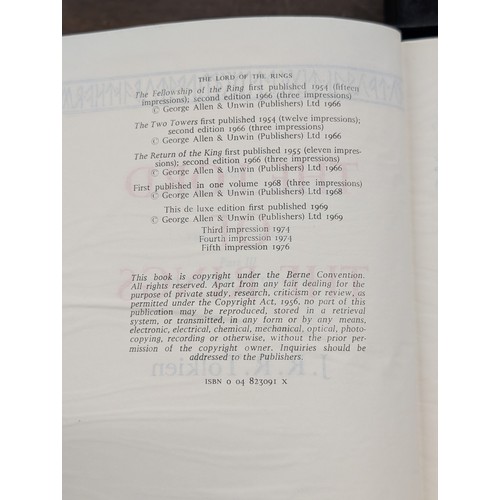 THE LORD OF THE RINGS
The Fellowship of the Ring first published 1954 (fifteen
impressions); second edition 1966 (three impressions)
© George Allen & Unwin (Publishers) Ltd 1966
The Two Towers first published 1954 (twelve impressions);
second edition 1966 (three impressions)
© George Allen & Unwin (Publishers) Ltd 1966
The Return of the King first published 1955 (eleven impres-
sions); second edition 1966 (three impressions)
© George Allen & Unwin (Publishers) Ltd 1966
First published in one volume 1968 (three impressions)
© George Allen & Unwin (Publishers) Ltd 1968
This de luxe edition first published 1969
© George Allen & Unwin (Publishers) Ltd 1969
Third impression 1974
Fourth impression 1974
Fifth impression 1976
This book is copyright under the Berne Convention.
All rights reserved. Apart from any fair dealing for the
purpose of private study, research, criticism or review, as
permitted under the Copyright Act, 1956, no part of this
publication may be reproduced, stored in a retrieval
system, or transmitted, in any form or by any means,
electronic, electrical, chemical, mechanical, optical, photo-
copying, recording or otherwise, without the prior per-
mission of the copyright owner. Inquiries should be
addressed to the Publishers.
J. R. R. Tolkien
ISBN 0 04 823091 X